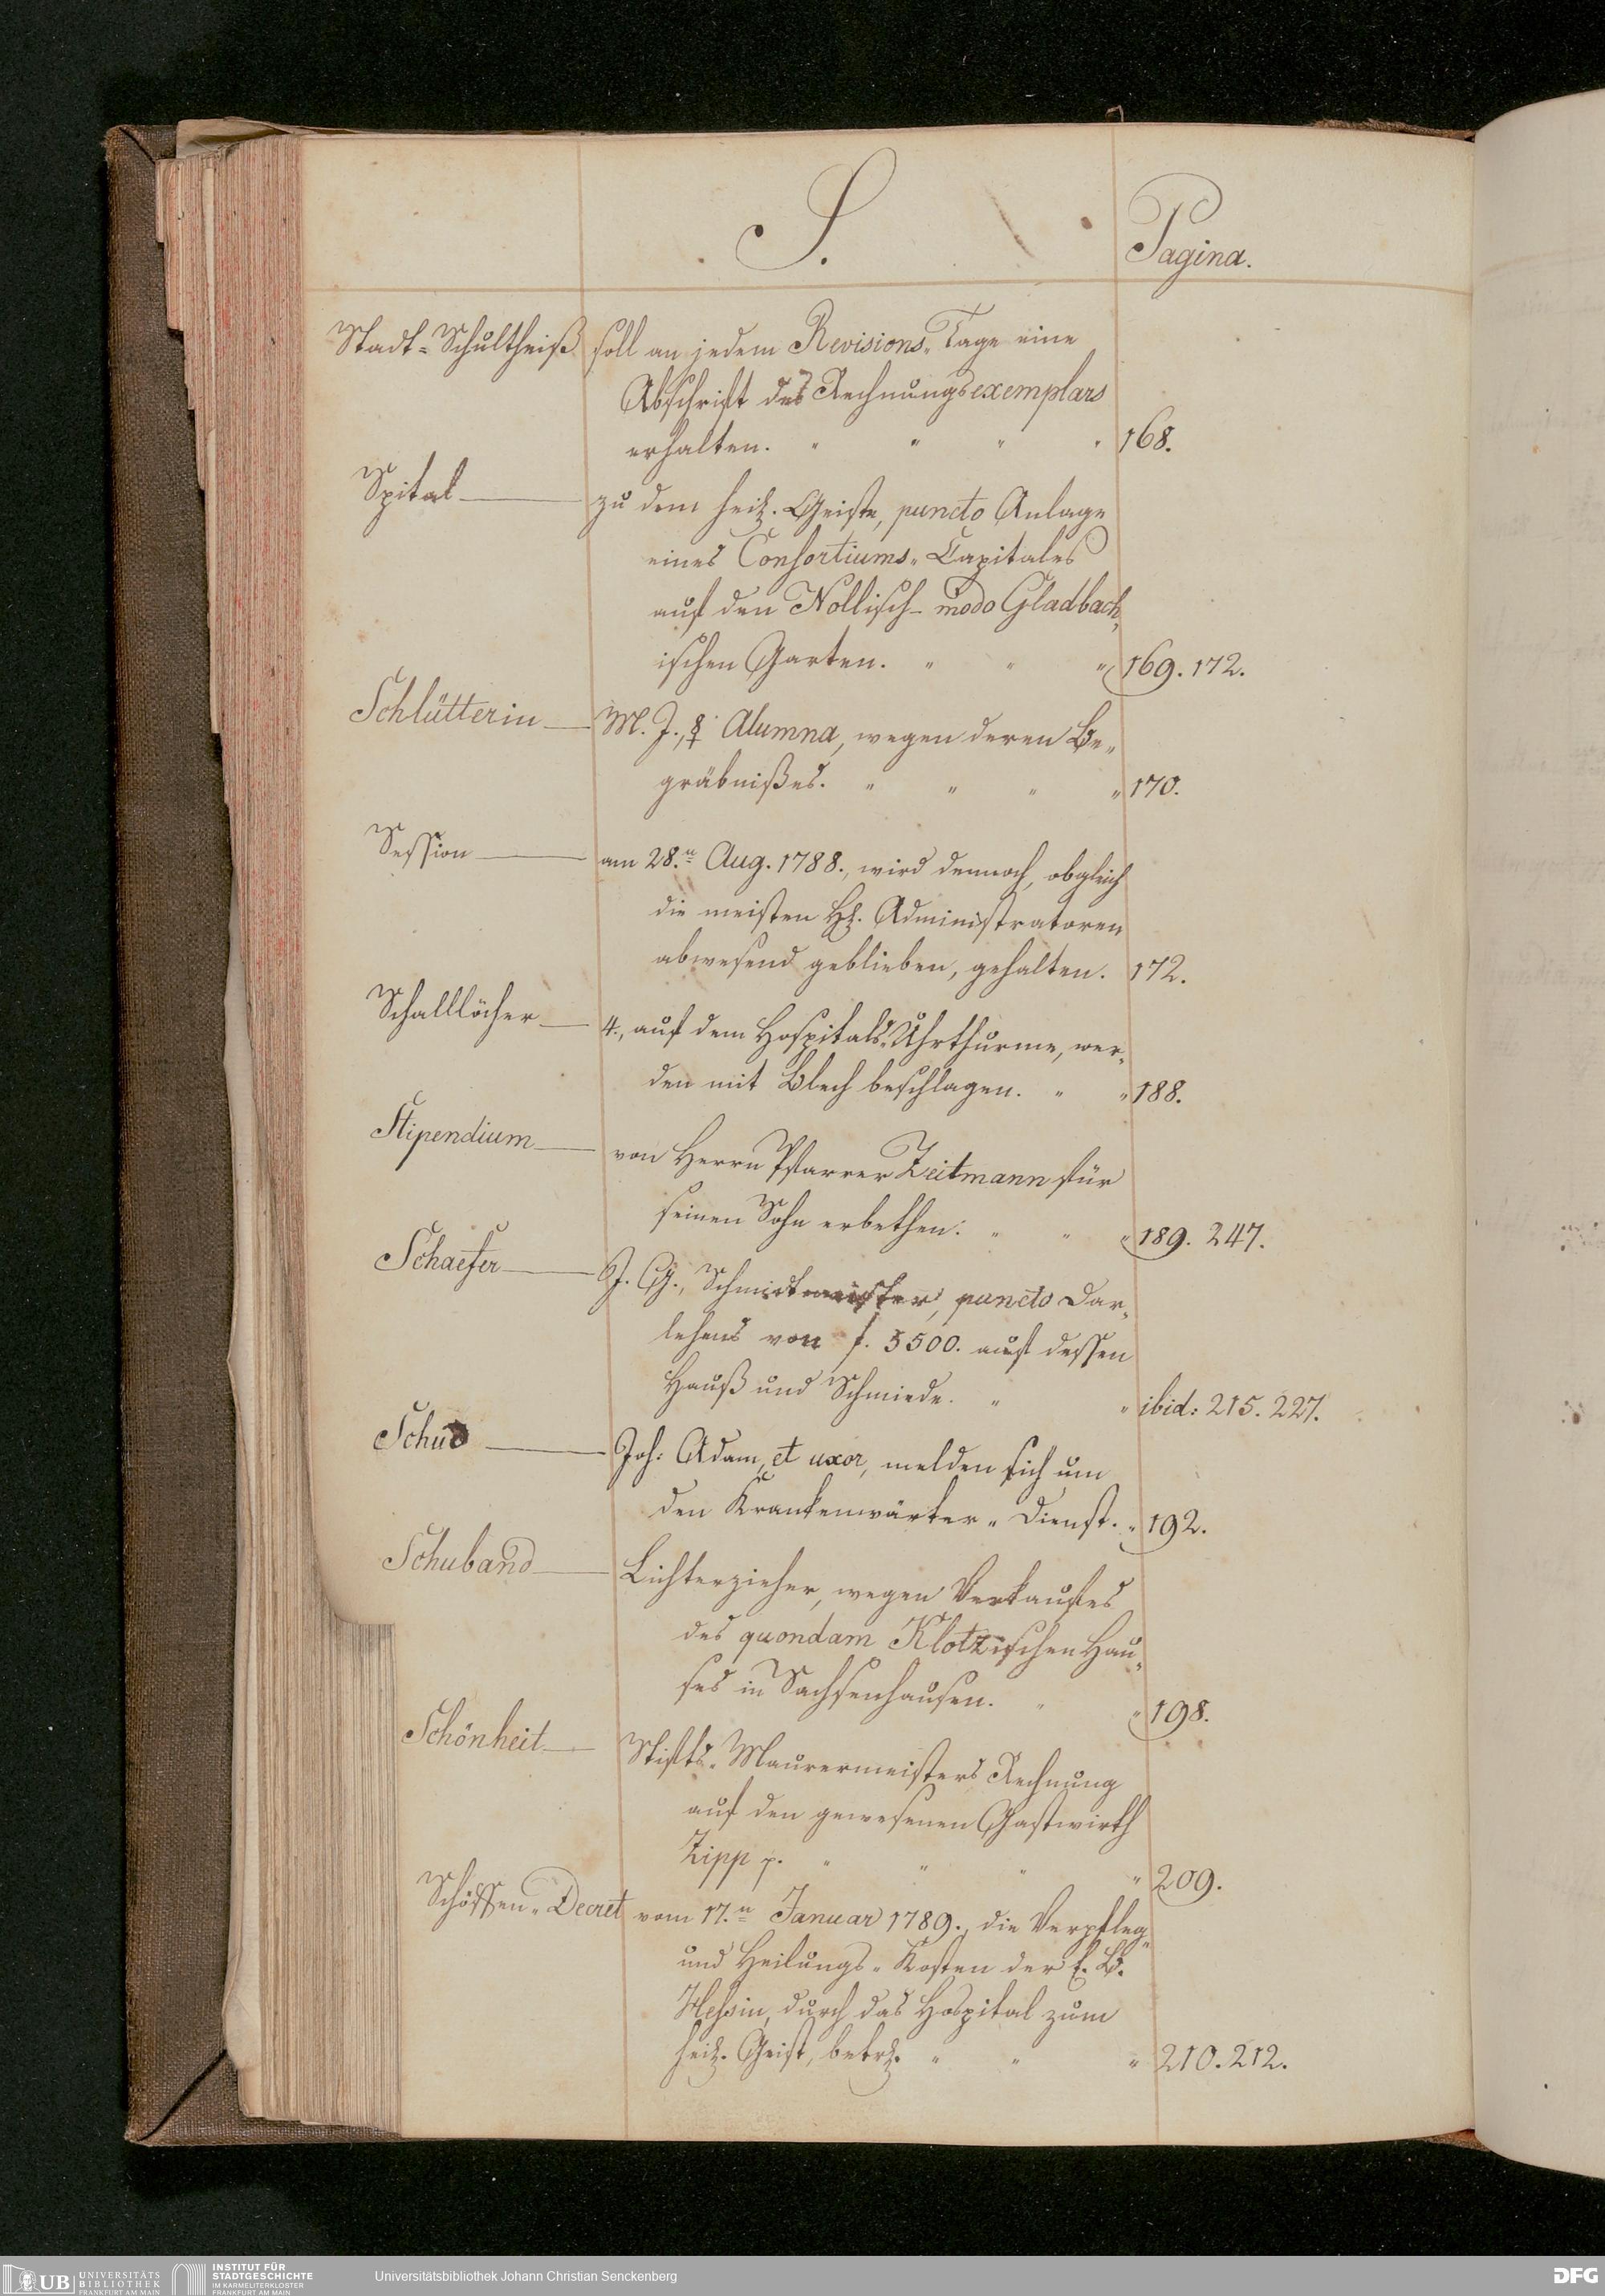 S.
Pagina.
Stadt-Schultheiß soll an jedem Revisions-Tage eine
Abschrift des Rechnungsexemplars
erhalten. " " " " 168.
Spital zu dem heil. Geiste, puncto Anlage
eines Consortiums-Capitales
auf den Nollisch- modo Gladbach-
ischen Garten. " " " 169. 172.
Schlütterin M. J., Alumna, wegen deren Be-
gräbnißes. " " " " 170.
Session am 28.n Aug. 1788., wird dennoch, obgleich
die meisten HH. Administratoren
abwesend geblieben, gehalten. 172.
Schalllöcher 4., auf dem Hospitals-Uhrthurme, wer-
den mit Blech beschlagen. " " 188.
Stipendium von Herrn Pfarrer Zeitmann für
seinen Sohn erbethen. " " " 189. 247.
Schaefer J. G., Schmidtmeister, puncto Dar-
lehens von f. 3500. auf dessen
Hauß und Schmiede. " " ibid: 215. 227.
Schud Joh: Adam, et uxor, melden sich um
den Krankenwärter-Dienst. " 192.
Schuband Lichterzieher, wegen Verkaufes
des quondam Klotzischen Hau-
ses in Sachsenhausen. " " 198.
Schönheit Stifts-Maurermeisters Rechnung
auf den gewesenen Gastwirth
Zipp p. " " " " 209.
Schöffen-Decret vom 17.n Januar 1789., die Verpfleg-
und Heilungs-Kosten der E. B.
Hessin, durch das Hospital zum
heil. Geist, betr. " " " 210. 212.
UB UNIVERSITÄTS
BIBLIOTHEK
FRANKFURT AM MAIN
INSTITUT FÜR
STADTGESCHICHTE
IM KARMELITERKLOSTER
FRANKFURT AM MAIN
Universitätsbibliothek Johann Christian Senckenberg
DFG